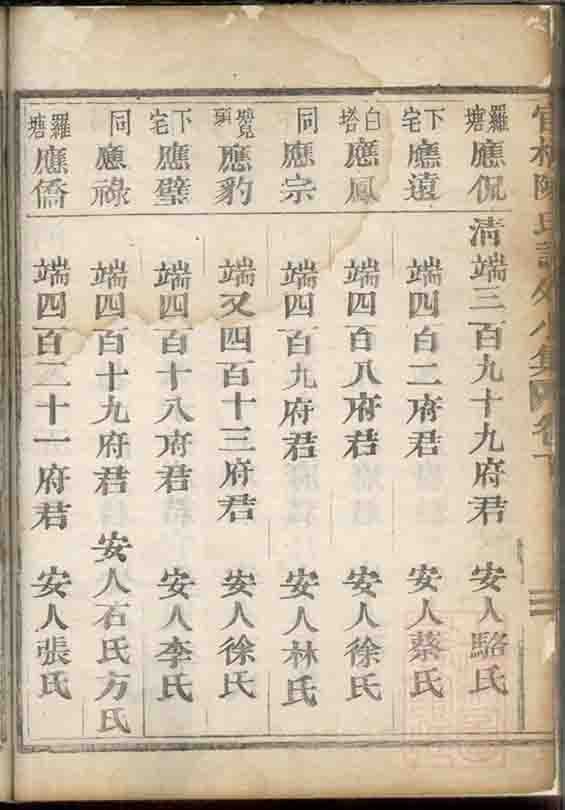 陳氏
羅塘 應侃 清端三百九十九府君 安人駱氏
下宅 應遠 端四百二府君 安人蔡氏
白塔 應鳳 端四百八府君 安人徐氏
同 應宗 端四百九府君 安人林氏
甏頭 應豹 端又四百十三府君 安人徐氏
下宅 應璧 端四百十八府君 安人李氏
同 應祿 端四百十九府君 安人石氏方氏
羅塘 應僑 端四百二十一府君 安人張氏